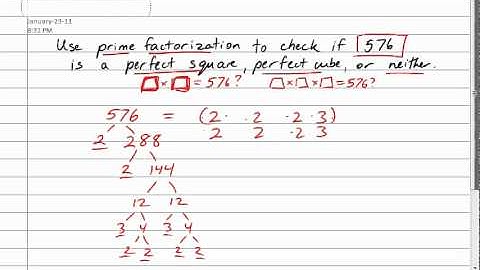 January-23-11
8:31 PM
Use prime factorization to check if 576
is a perfect square, perfect cube, or neither.
□×□ = 576? □×□×□ = 576?
576 = (2 · · 2 · 2 · 3)
2 2 · 2 3
2 288
2 144
12 12
3 4 3 4
2 2 2 2